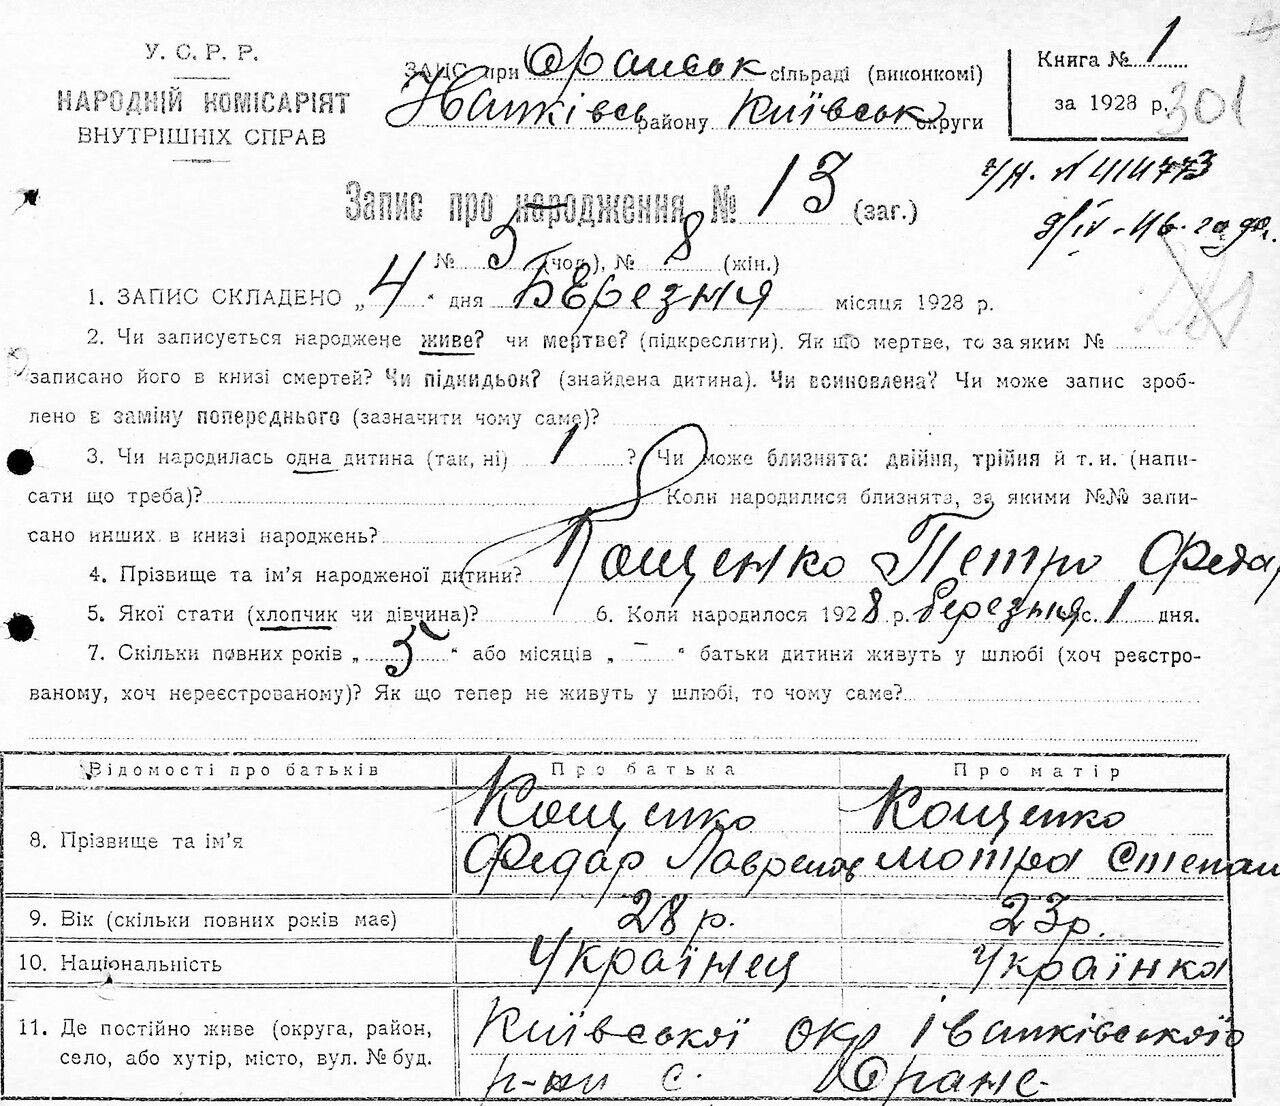 У. С. Р. Р.
НАРОДНІЙ КОМІСАРІЯТ
ВНУТРІШНІХ СПРАВ
ЗАЦС при Оранськ сільраді (виконкомі)
району Київськ округи
Книга № 1
за 1928 р. 301
Запис про народження № 13 (заг.)
№ 5 (чол.), № 8 (жін.)
1. ЗАПИС СКЛАДЕНО „4“ дня Березня місяця 1928 р.
2. Чи записується народжене живе? чи мертве? (підкреслити). Як що мертве, то за яким №
записано його в книзі смертей? Чи підкидьок? (знайдена дитина). Чи всиновлена? Чи може запис зроб-
лено в заміну попереднього (зазначити чому саме)?
3. Чи народилась одна дитина (так, ні) 1 ? Чи може близнята: двійня, трійня й т. и. (напи-
сати що треба)? Коли народилися близнята, за якими №№ запи-
сано инших в книзі народжень?
4. Прізвище та ім'я народженої дитини? Кощенко Петро Федар
5. Якої стати (хлопчик чи дівчина)? 6. Коли народилося 1928 р. березня с. 1 дня.
7. Скільки повних років „ 5 “ або місяців „ – “ батьки дитини живуть у шлюбі (хоч реєстро-
ваному, хоч нереєстрованому)? Як що тепер не живуть у шлюбі, то чому саме?
Відомості про батьків Про батька Про матір
8. Прізвище та ім'я Кощенко Кощенко
Федар Лаврентов Мотра Степан
9. Вік (скільки повних років має) 28 р. 23 р.
10. Національність Українец Українка
11. Де постійно живе (округа, район,
село, або хутір, місто, вул. № буд.
Київської окр Іванківського
р-ни с. Оране